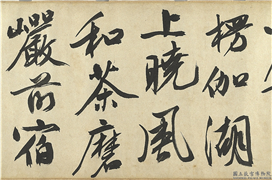 楞伽湖
上曉風
和茶磨
巖前宿
國立故宮博物院